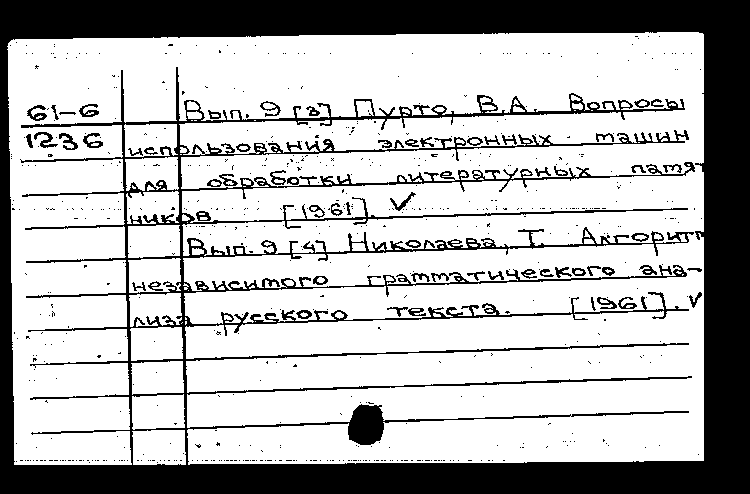 61-6 Вып. 9 [3] Пурто, В.А. Вопросы
1236 использования электронных машин
для обработки литературных памят
ников. [1961]. ✓
Вып. 9 [4] Николаева, Т. Алгоритм
независимого грамматического ана-
лиза русского текста. [1961]. ✓